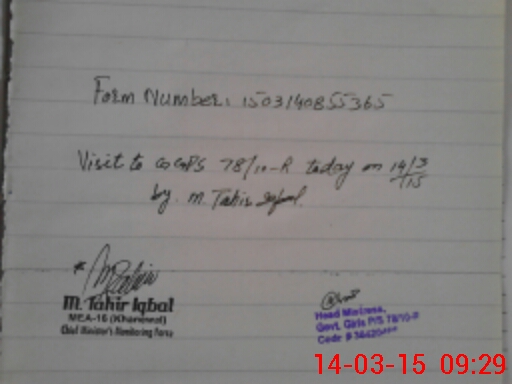 Form Number: 150314085S365
Visit to GGPS 78/10-R today on 14/3/15
by. M. Tahir Iqbal.
M. Tahir Iqbal
MEA-16 (Khanewal)
Chief Minister's Monitoring Force
Head Mistress,
Govt. Girls P/S 78/10-R
Code #
14-03-15 09:29